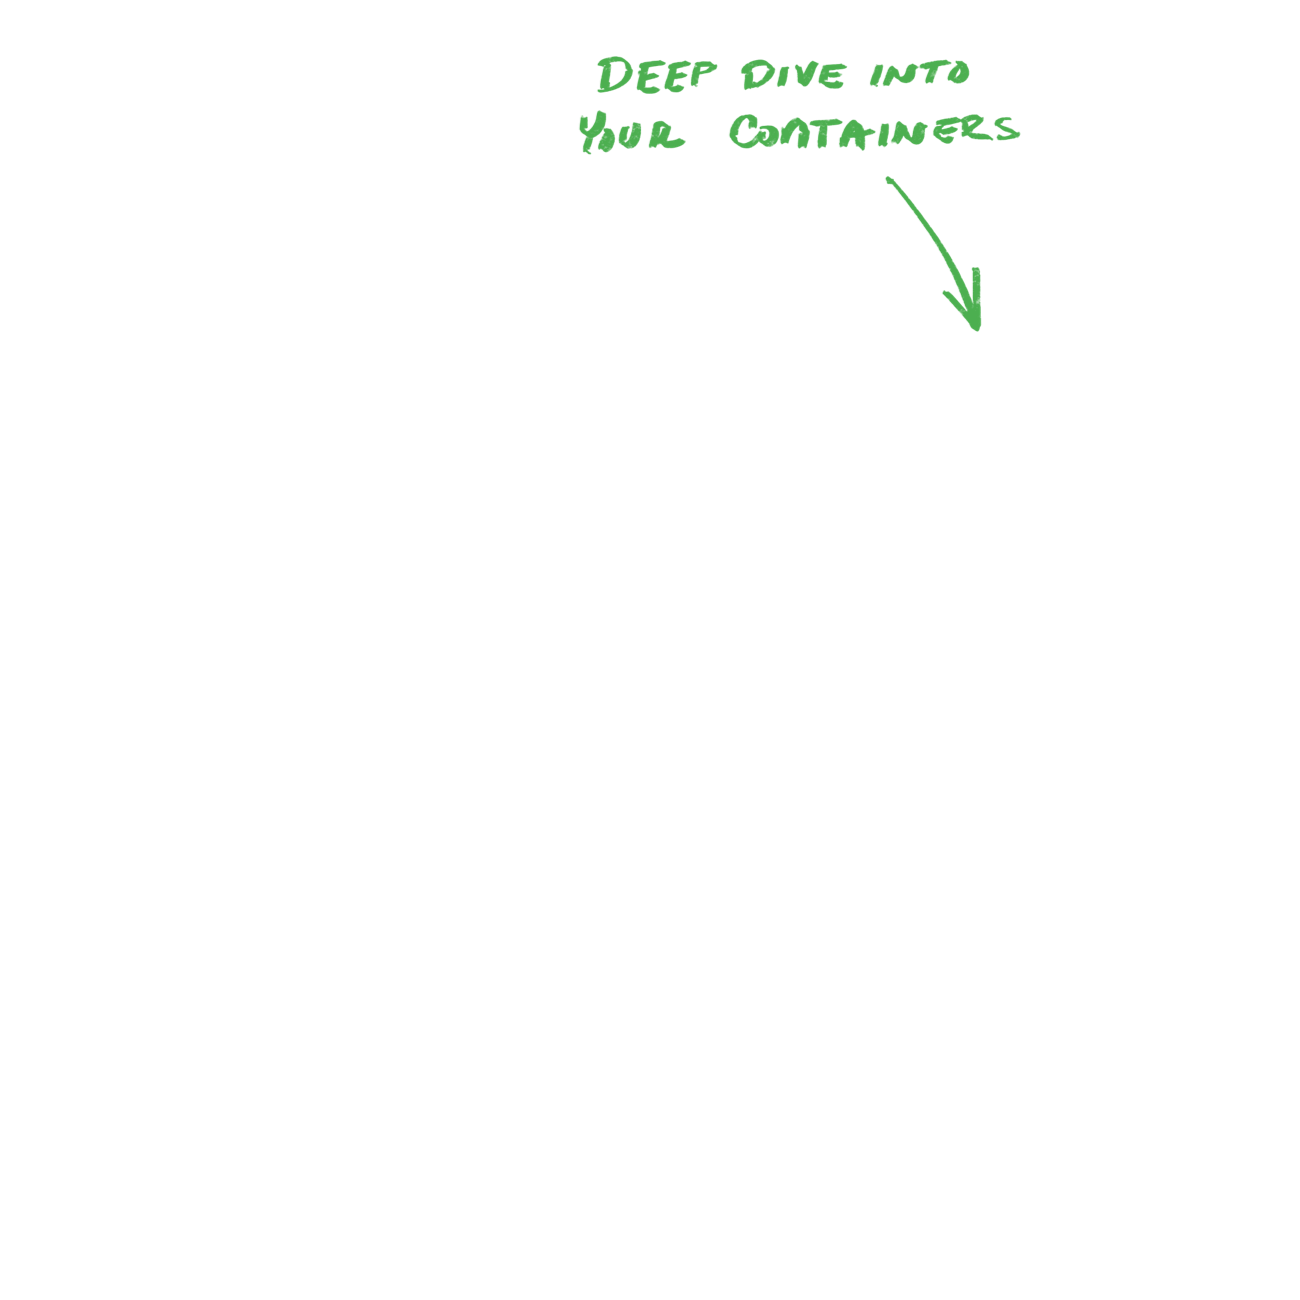 DEEP DIVE INTO
YOUR CONTAINERS